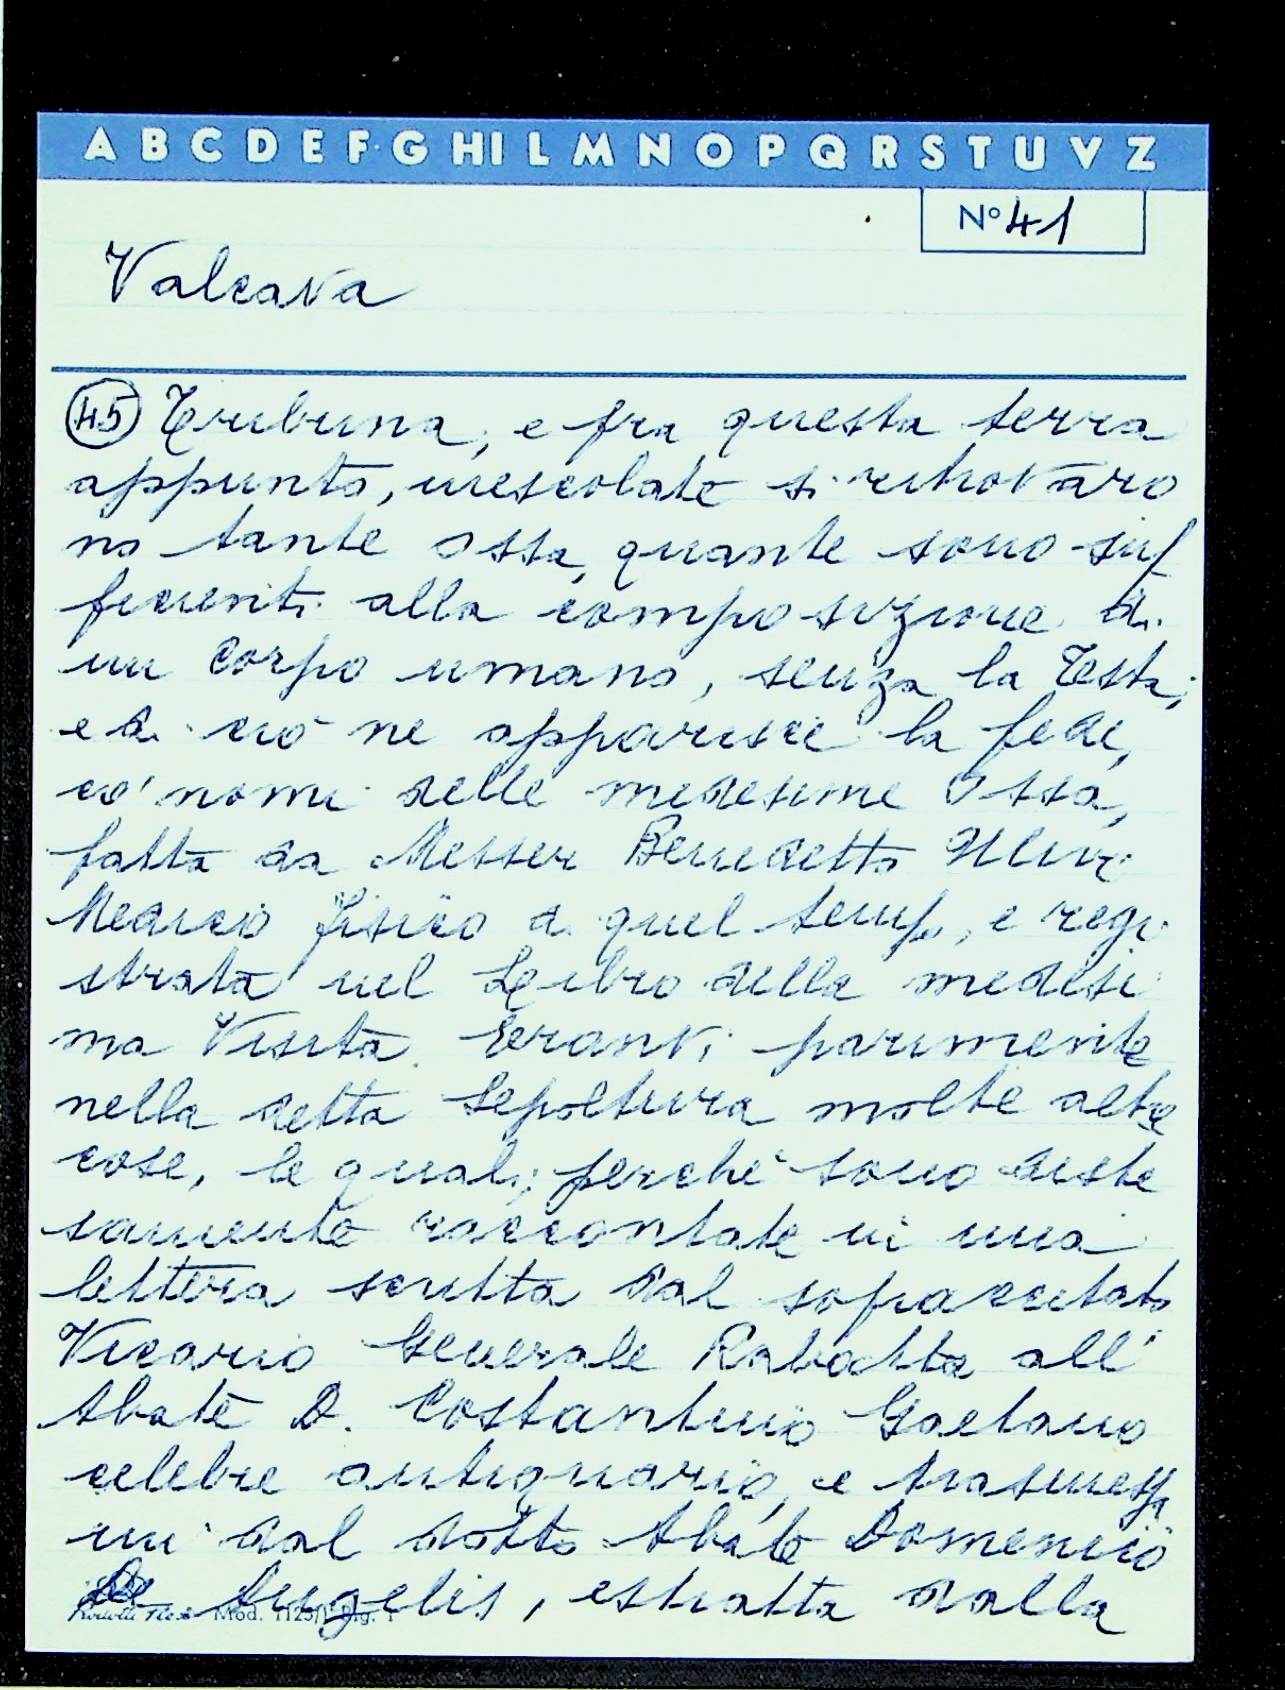 A B C D E F G H I L M N O P Q R S T U V Z
N° 41
Valcava
45 Tribuna, e fra questa terra
appunto, mescolate si ritrovaro
no tante ossa, quante sono suf
ficienti alla composizione di
un Corpo umano, senza la Testa;
e di ciò ne apparisce la fede,
co' nomi delle medesime Ossa,
fatta da Messer Benedetto
Medico fisico di quel tempo, e regi
strata nel Libro della medesi
ma Visita. Eranvi parimente
nella detta Sepoltura molte altre
cose, le quali; perché sono diste
samente raccontate in una
lettera scritta dal sopraccitato
Vicario Generale Rabatta all'
Abate D. Costantino Gaetano
celebre antiquario, e trasmessa
mi dal dotto Abate Domenico
De Angelis, estratta dalla
Mod. 1125/